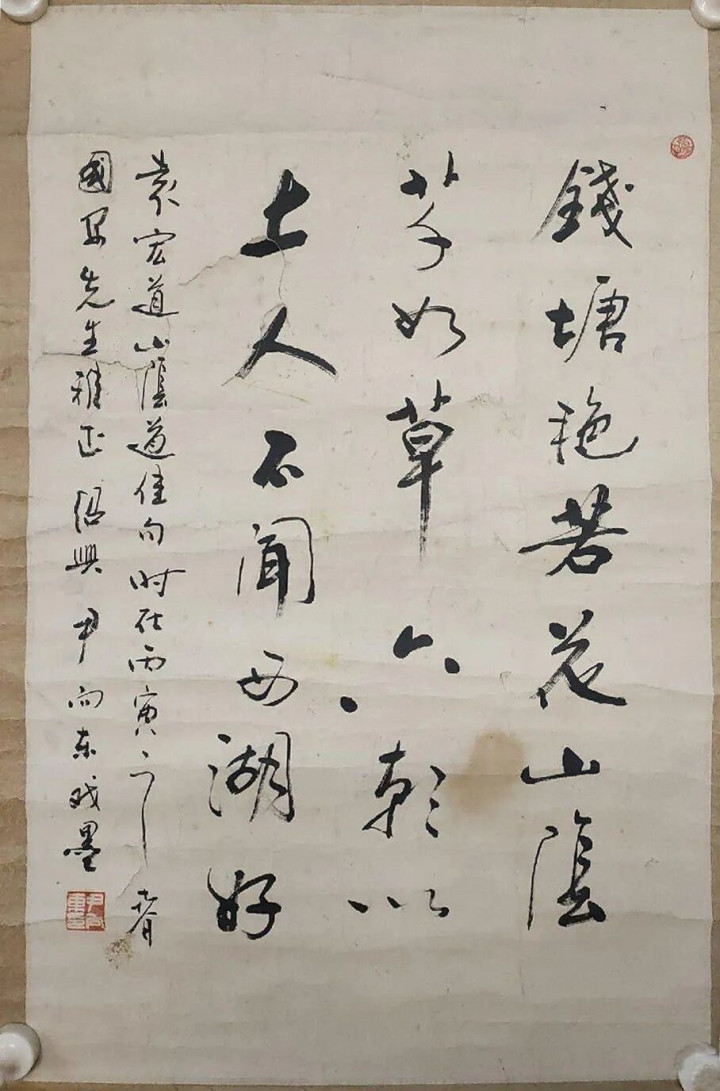 錢塘艳若花山陰
芊如草六朝以
土人不闻西湖好
袁宏道山陰道佳句时在丙寅之春
國安先生雅正 绍興尹向东戏墨